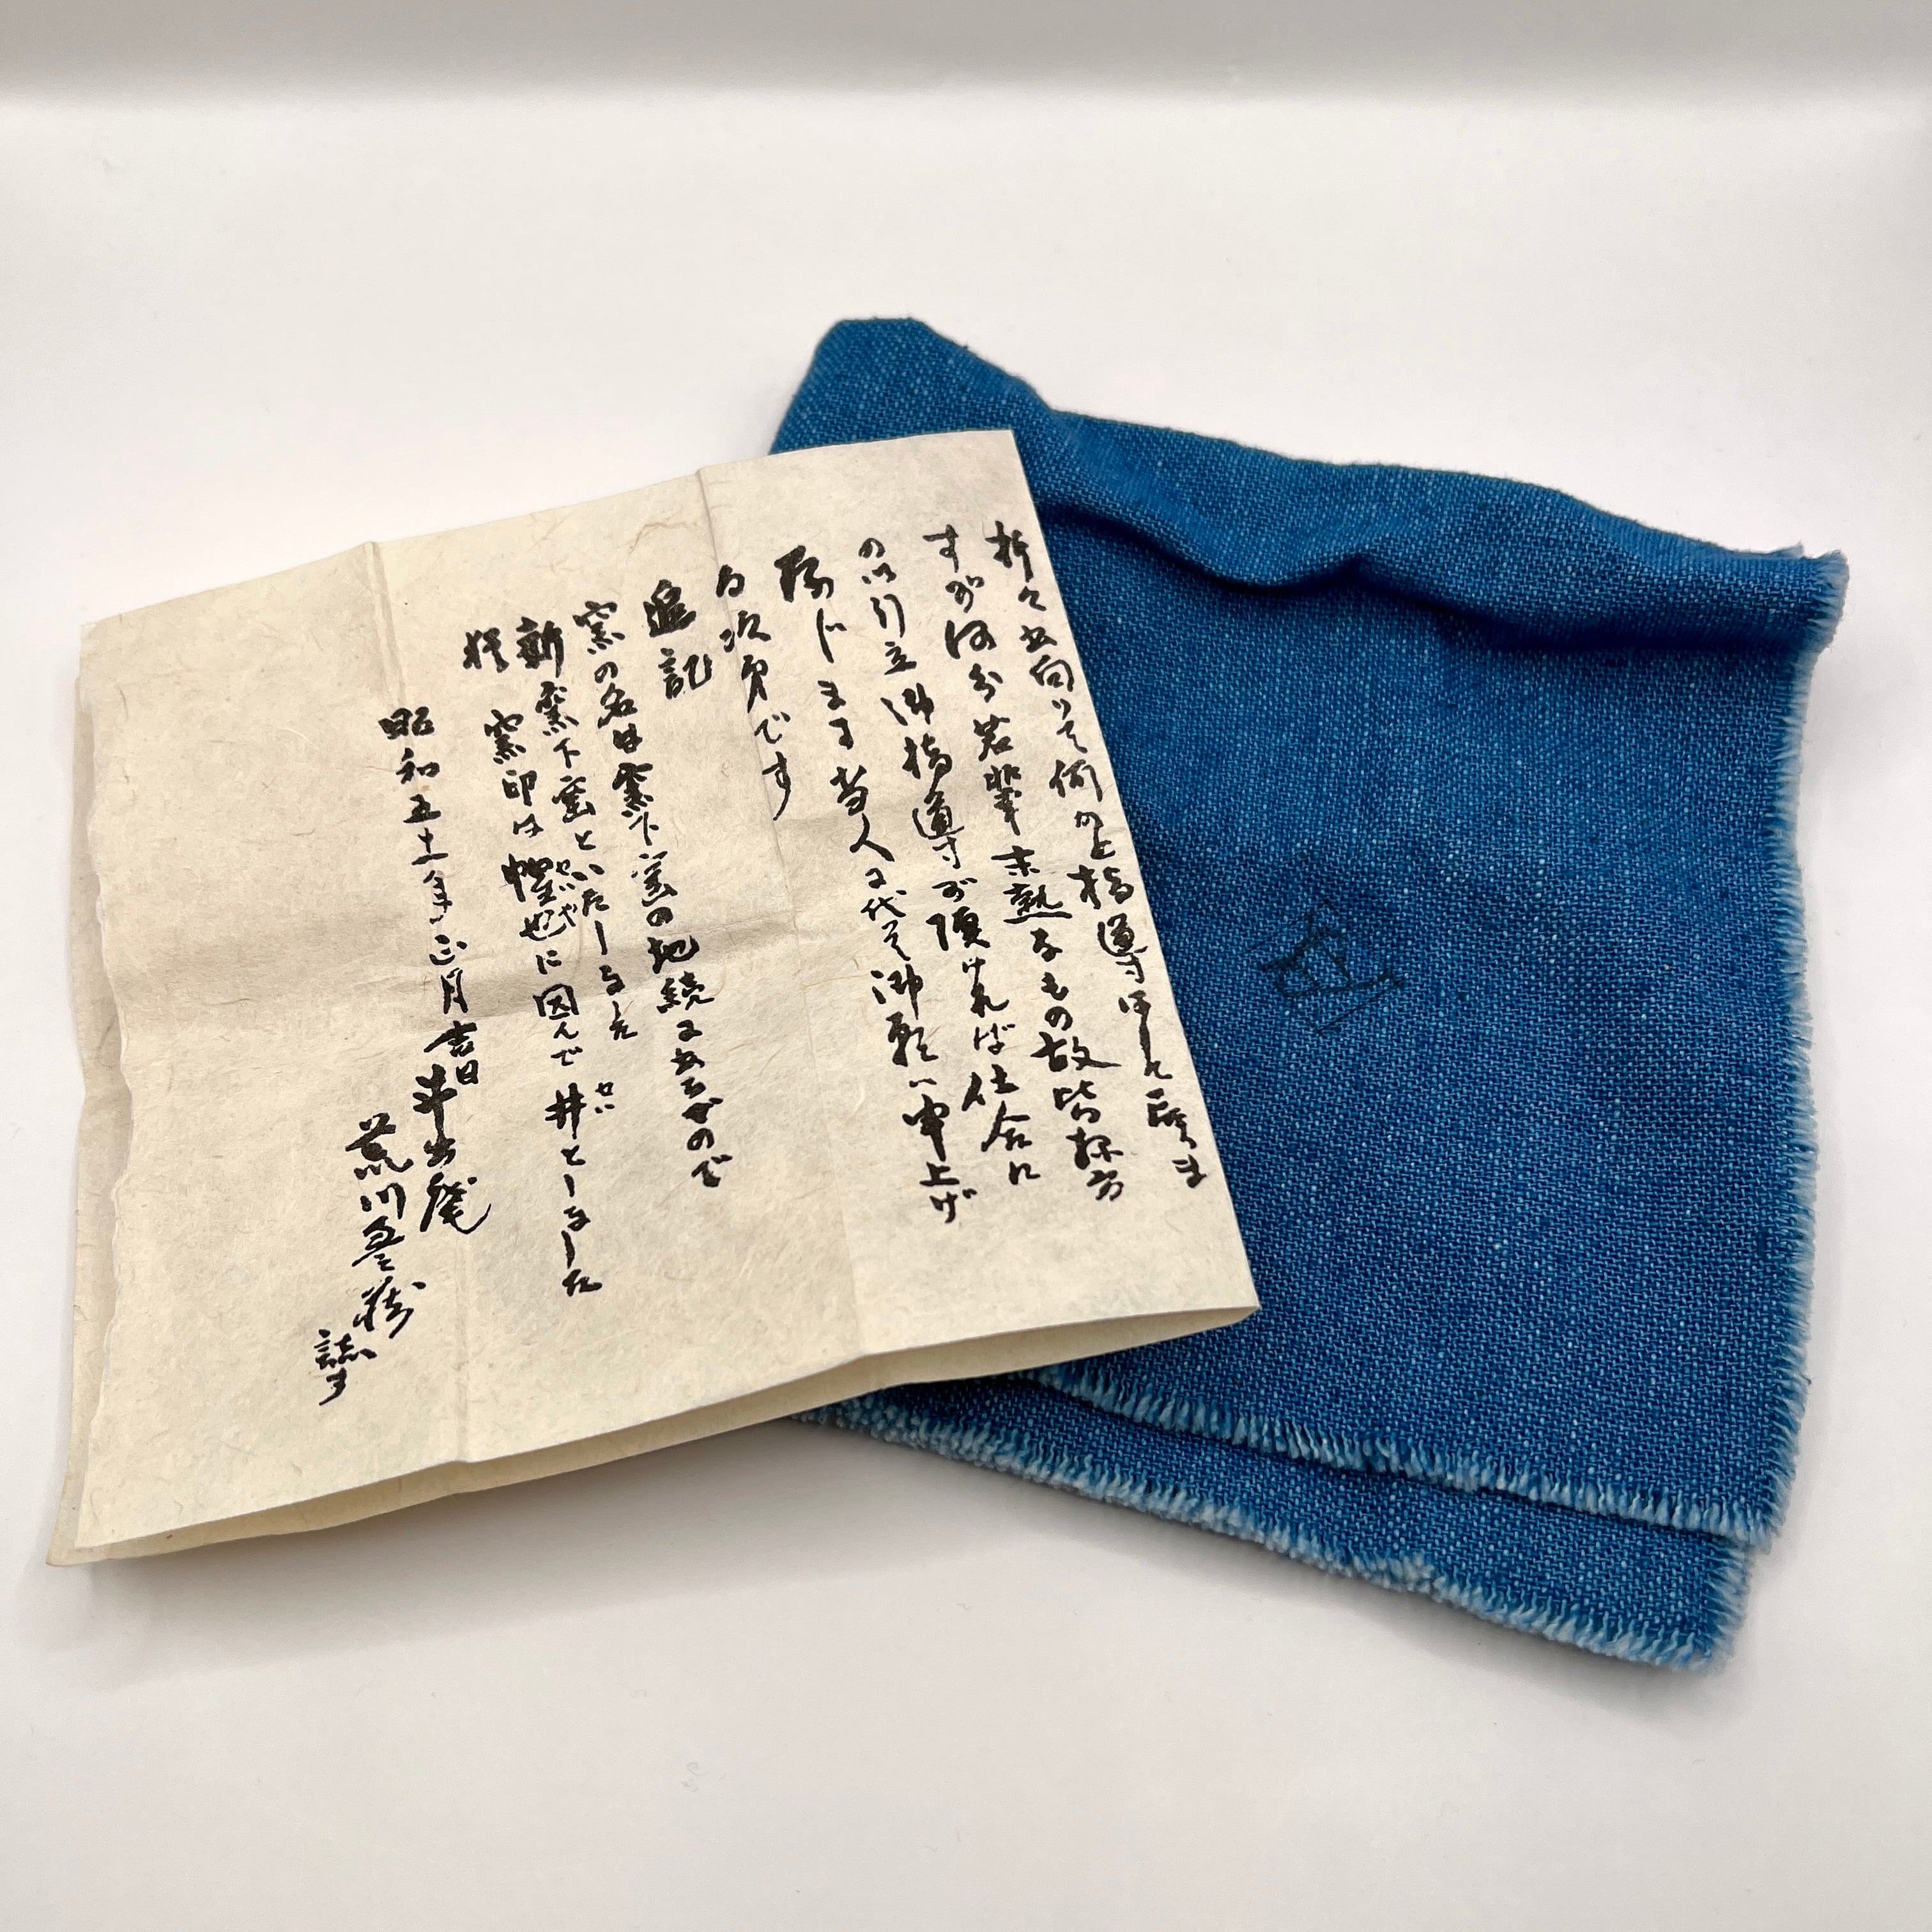 折々出向いて何かと指導はして居りま
すが何分若輩未熟なもの故皆様方
の御引立御指導が頂ければ仕合に
存じます当人に代って御願い申上げ
る次第です
追記
窯の名は窯下窯の地続にあるので
新窯下窯といたしました
窯印は惺也に因んで井としました
せいや
せい
昭和五十一年正月吉日
斗出庵
荒川豊蔵
誌す